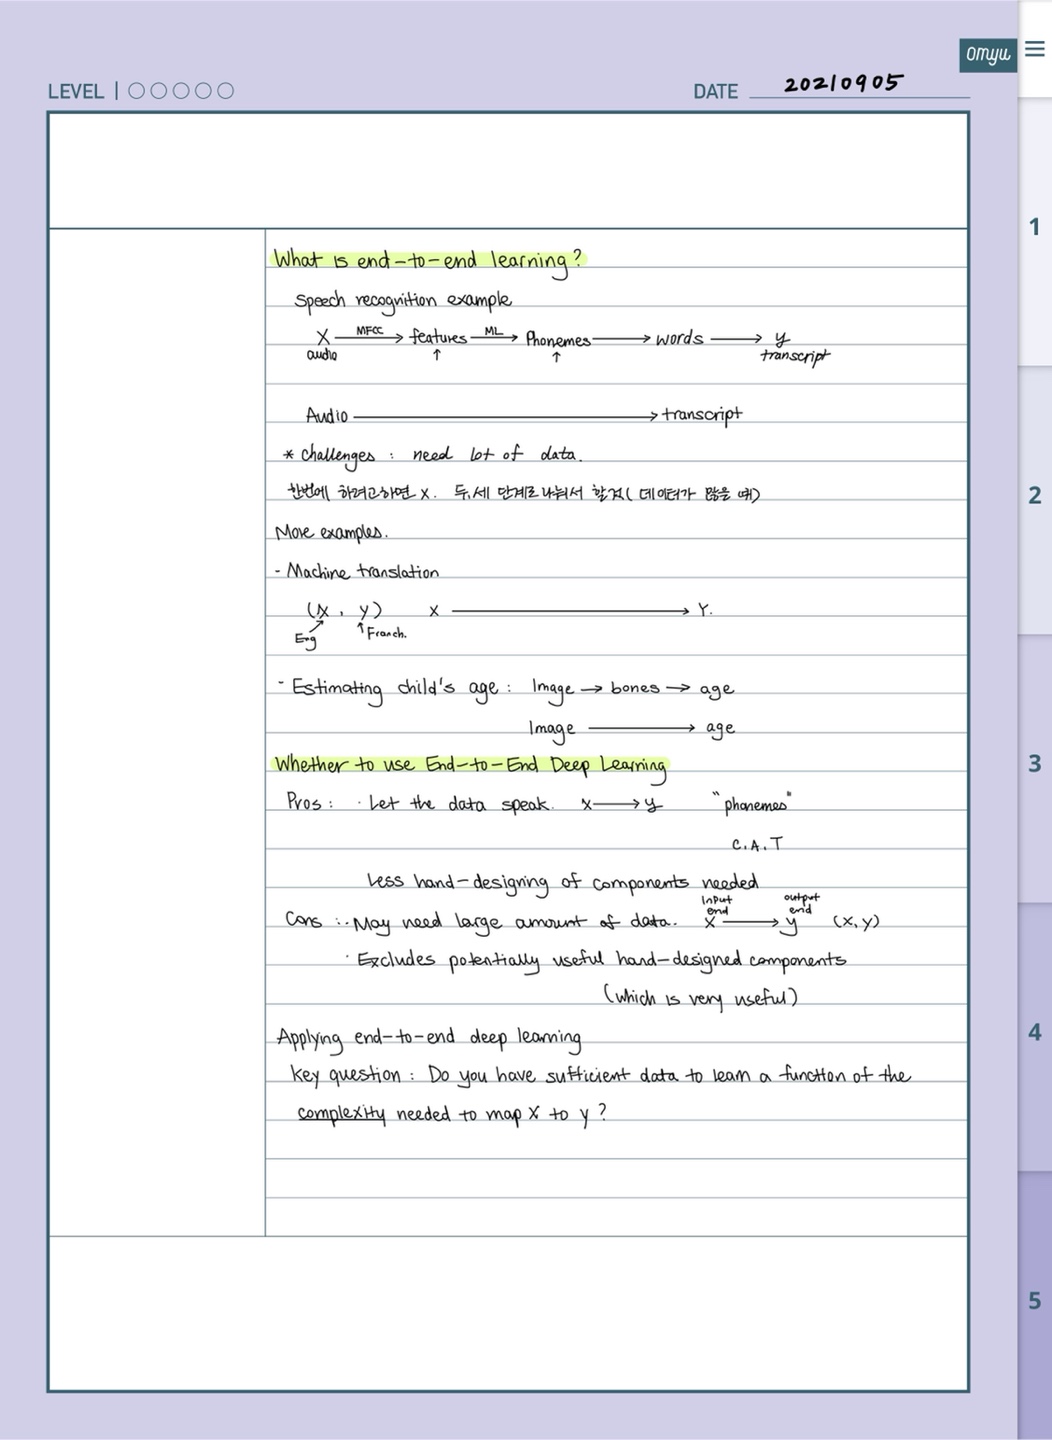 omyu
LEVEL
DATE 20210905
What is end-to-end learning?
Speech recognition example
X —MFCC→ features —ML→ Phonemes → words → y
audio ↑ ↑ transcript
Audio → transcript
* challenges : need lot of data.
한번에 하려고하면 x. 두,세 단계로 나눠서 할것 ( 데이터가 많을 때)
More examples.
- Machine translation
(X, y) X → Y.
Eng ↑ Franch.
- Estimating child's age : Image → bones → age
Image → age
Whether to use End-to-End Deep Learning
Pros : · Let the data speak. x → y "phonemes"
C.A.T
Less hand-designing of components needed
input end output end
Cons : · May need large amount of data. x → y (x, y)
· Excludes potentially useful hand-designed components
(which is very useful)
Applying end-to-end deep learning
Key question : Do you have sufficient data to learn a function of the
complexity needed to map X to y ?
1
2
3
4
5